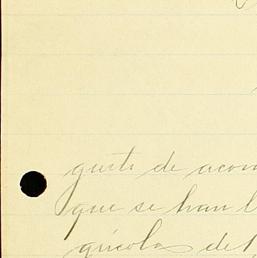 gusto de acom
que se han l
grícolas del